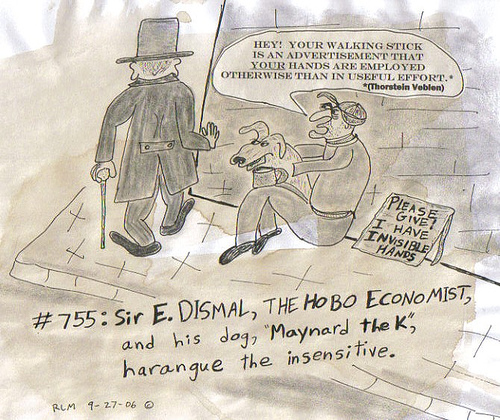 HEY! YOUR WALKING STICK
IS AN ADVERTISEMENT THAT
YOUR HANDS ARE EMPLOYED
OTHERWISE THAN IN USEFUL EFFORT.*
*(Thorstein Veblen)
PLEASE
GIVE!
I HAVE
INVISIBLE
HANDS
#755: Sir E. DISMAL, THE HOBO ECONOMIST,
and his dog, "Maynard the K",
harangue the insensitive.
RLM 9-27-06 ©